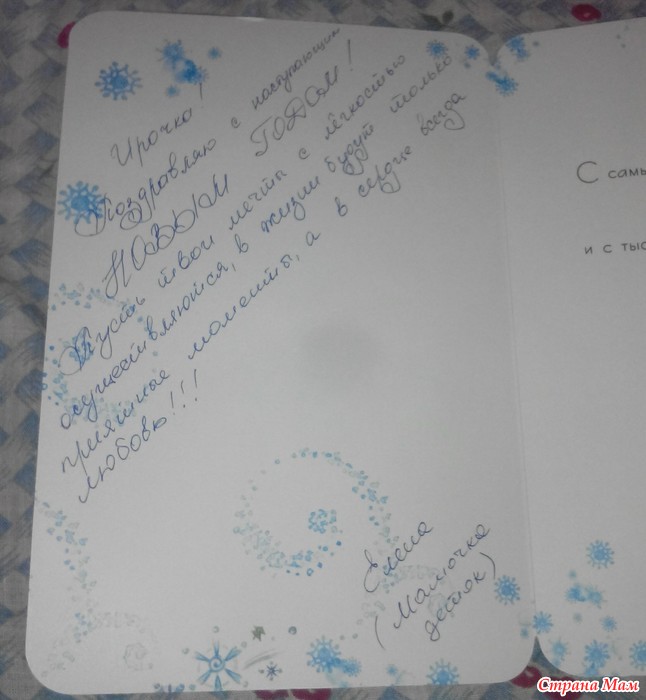 Ирочка!
Поздравляю с наступающим
НОВЫМ ГОДОМ!
Пусть твои мечты с лёгкостью
осуществляются, в жизни будут только
приятные моменты, а в сердце всегда
любовь!!!
Елена
(Мамочка
деток)
С самы
и с тыс
Страна Мам